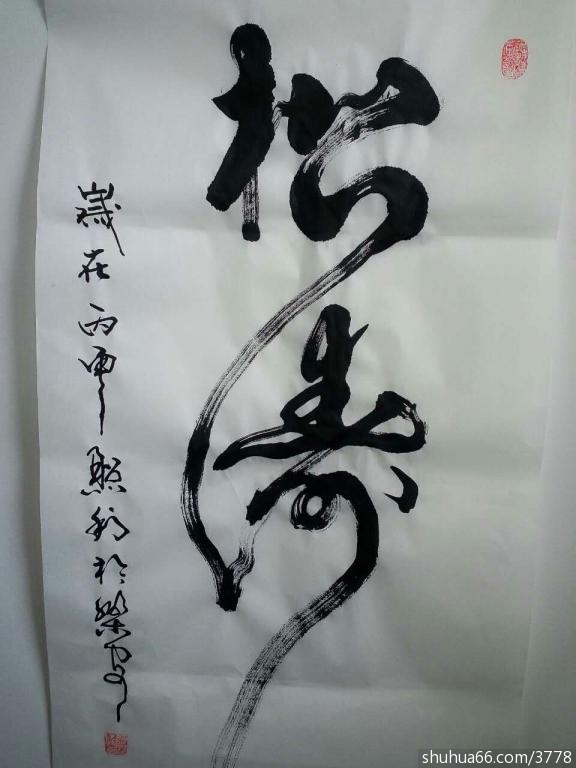 松寿
歲在丙申 於樂安
shuhua66.com/3778